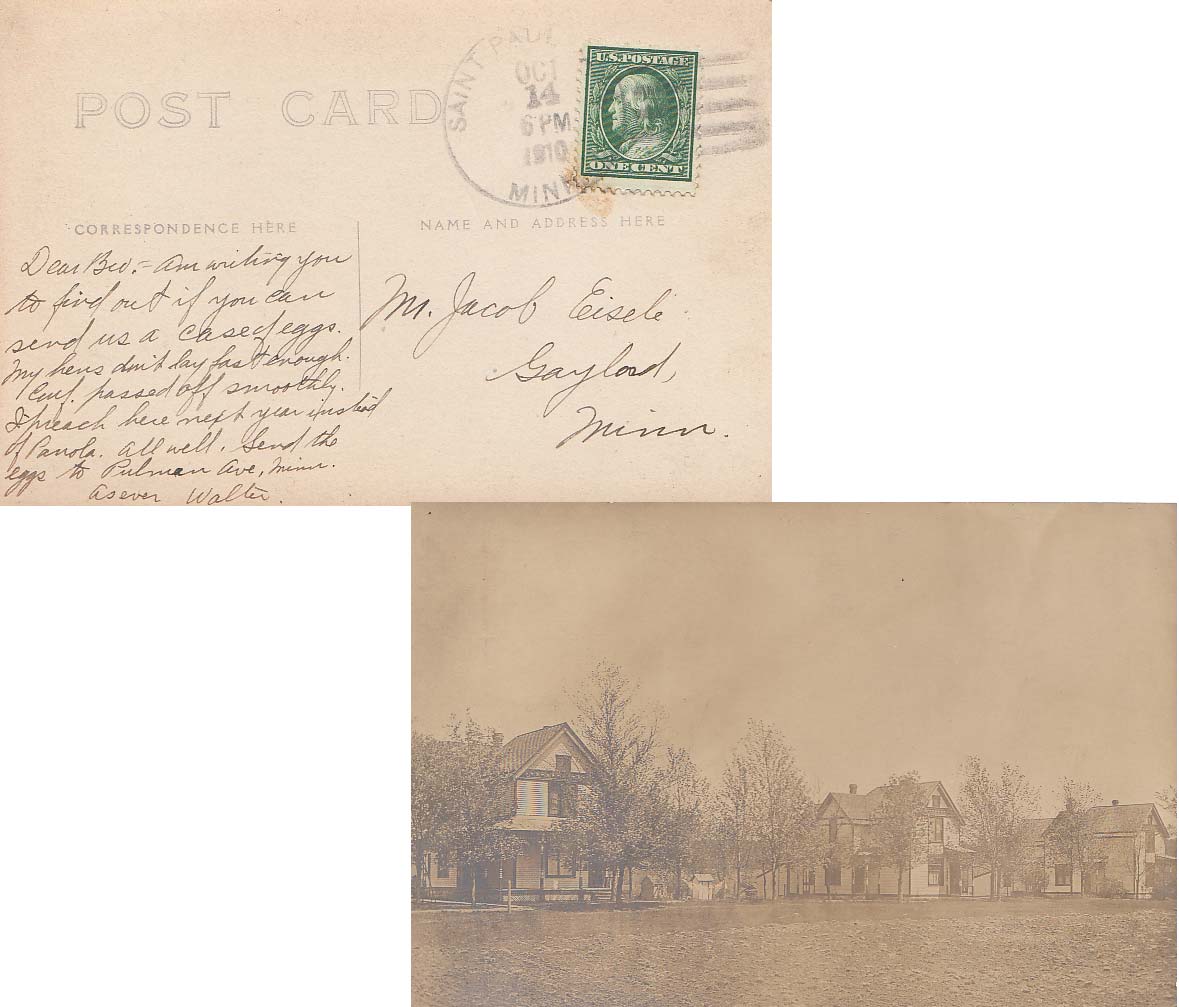 POST CARD
SAINT PAUL
OCT
14
6 PM
1910
MINN
U.S. POSTAGE
ONE CENT
CORRESPONDENCE HERE
NAME AND ADDRESS HERE
Dear Bro:- Am writing you
to find out if you can
send us a case of eggs.
My hens don't lay fast enough.
Conf. passed off smoothly.
I preach here next year instead
of Panola. All well. Send the
eggs to Pulman Ave, Minn.
As ever Walter.
Mr. Jacob Eisele
Gaylord,
Minn.